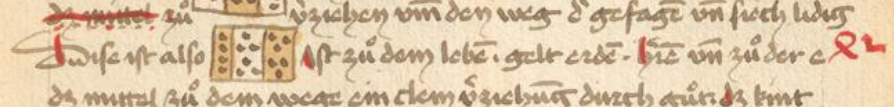 dz mittel zů v̄ziehen vm̄ den weg d̓ gefagē vn̄ siech lidig
Dise ist also Ist zů dem lebē · gelt erdē · hiē vn̄ zů der e
dz mittel zů dem wege ein clem v̄ziehūg durch gůt dz kint